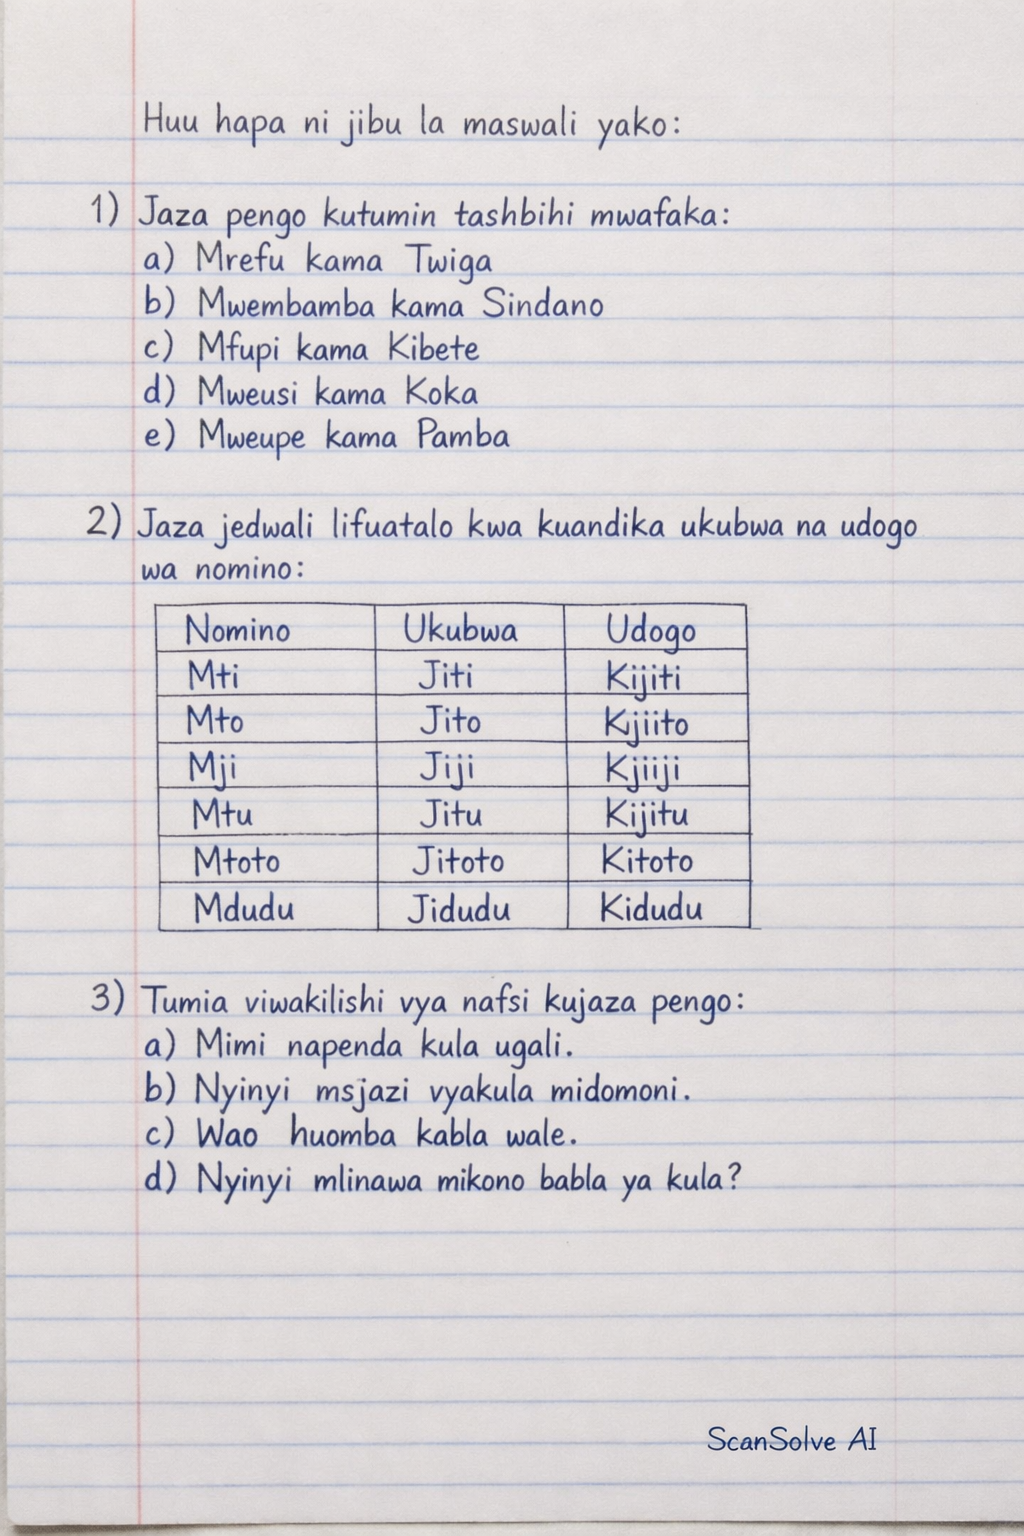 Huu hapa ni jibu la maswali yako:
1) Jaza pengo kutumin tashbihi mwafaka:
a) Mrefu kama Twiga
b) Mwembamba kama Sindano
c) Mfupi kama Kibete
d) Mweusi kama Koka
e) Mweupe kama Pamba
2) Jaza jedwali lifuatalo kwa kuandika ukubwa na udogo
wa nomino:
Nomino Ukubwa Udogo
Mti Jiti Kijiti
Mto Jito Kjiito
Mji Jiji Kjiiji
Mtu Jitu Kijitu
Mtoto Jitoto Kitoto
Mdudu Jidudu Kidudu
3) Tumia viwakilishi vya nafsi kujaza pengo:
a) Mimi napenda kula ugali.
b) Nyinyi msjazi vyakula midomoni.
c) Wao huomba kabla wale.
d) Nyinyi mlinawa mikono babla ya kula?
ScanSolve AI